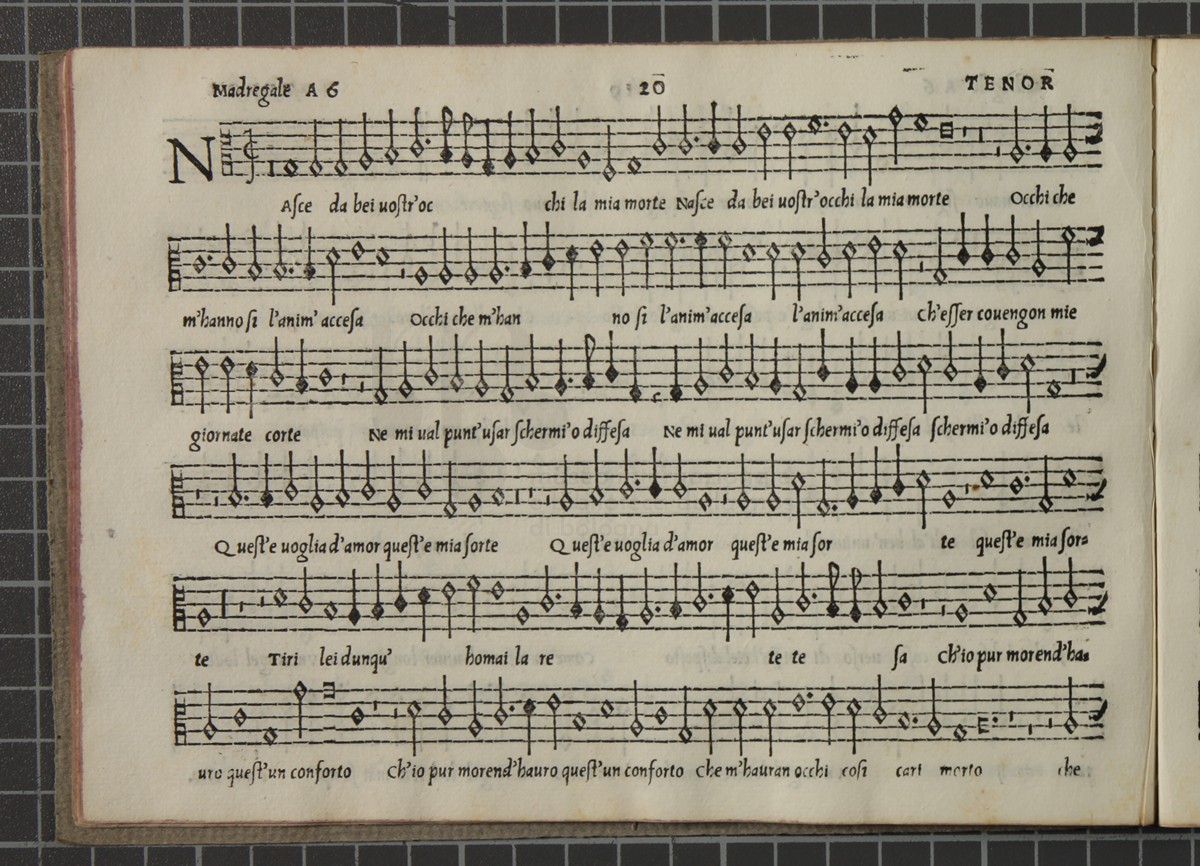 Madregale A 6 20 TENOR
NAſce da bei uoſtr'oc chi la mia morte Naſce da bei uoſtr'occhi la mia morte Occhi che
m'hanno ſi l'anim' acceſa Occhi che m'han no ſi l'anim'acceſa l'anim'acceſa Ch'eſſer couengon mie
giornate corte Ne mi ual punt'uſar ſchermi'o diffeſa Ne mi ual punt'uſar ſchermi'o diffeſa ſchermi'o diffeſa
Queſt'e uoglia d'amor queſt'e mia ſorte Queſt'e uoglia d'amor queſt'e mia ſor te queſt'e mia ſor=
te Tiri lei dunqu' homai la re te te ſa Ch'io pur morend'ha=
uro queſt'un conforto Ch'io pur morend'hauro queſt'un conforto Che m'hauran occhi coſi cari morto che